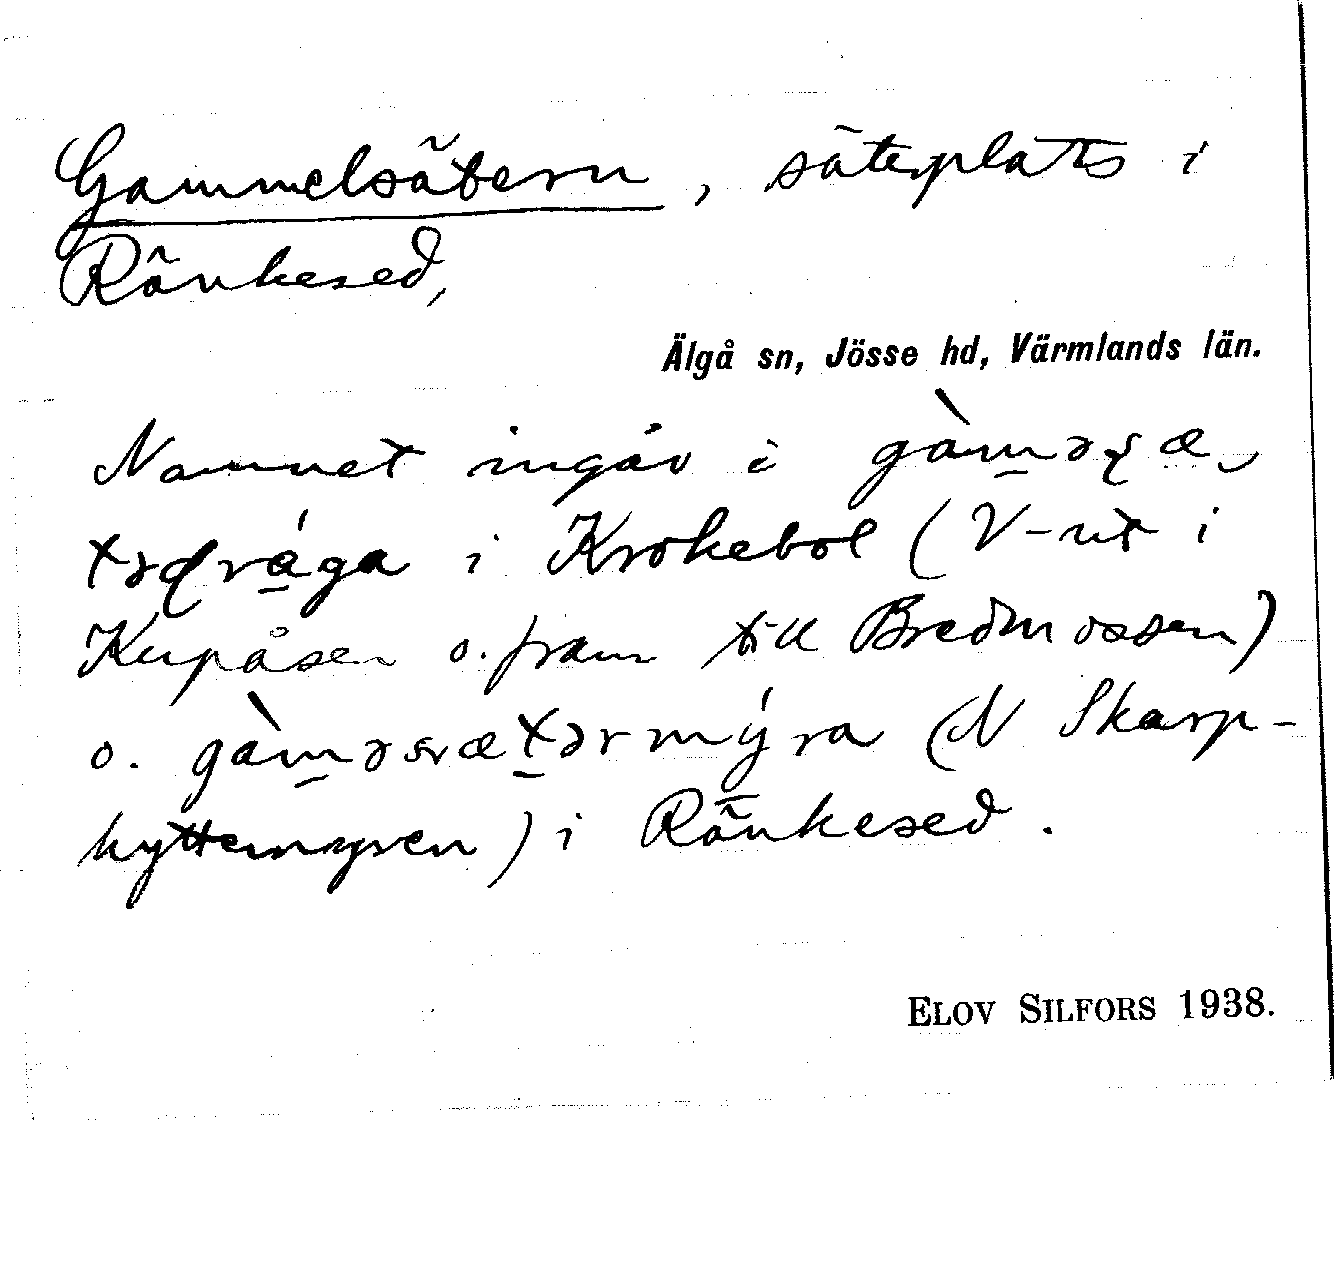 Gammelsätern, säterplats i
Rånkesed,
Älgå sn, Jösse hd, Värmlands län.
Namnet ingår i
i Krokebol (V-ut i
Kupåsen o. fram till Bredmossen)
o. (N Skarp-
hyttemyren) i Rånkesed.
ELOV SILFORS 1938.